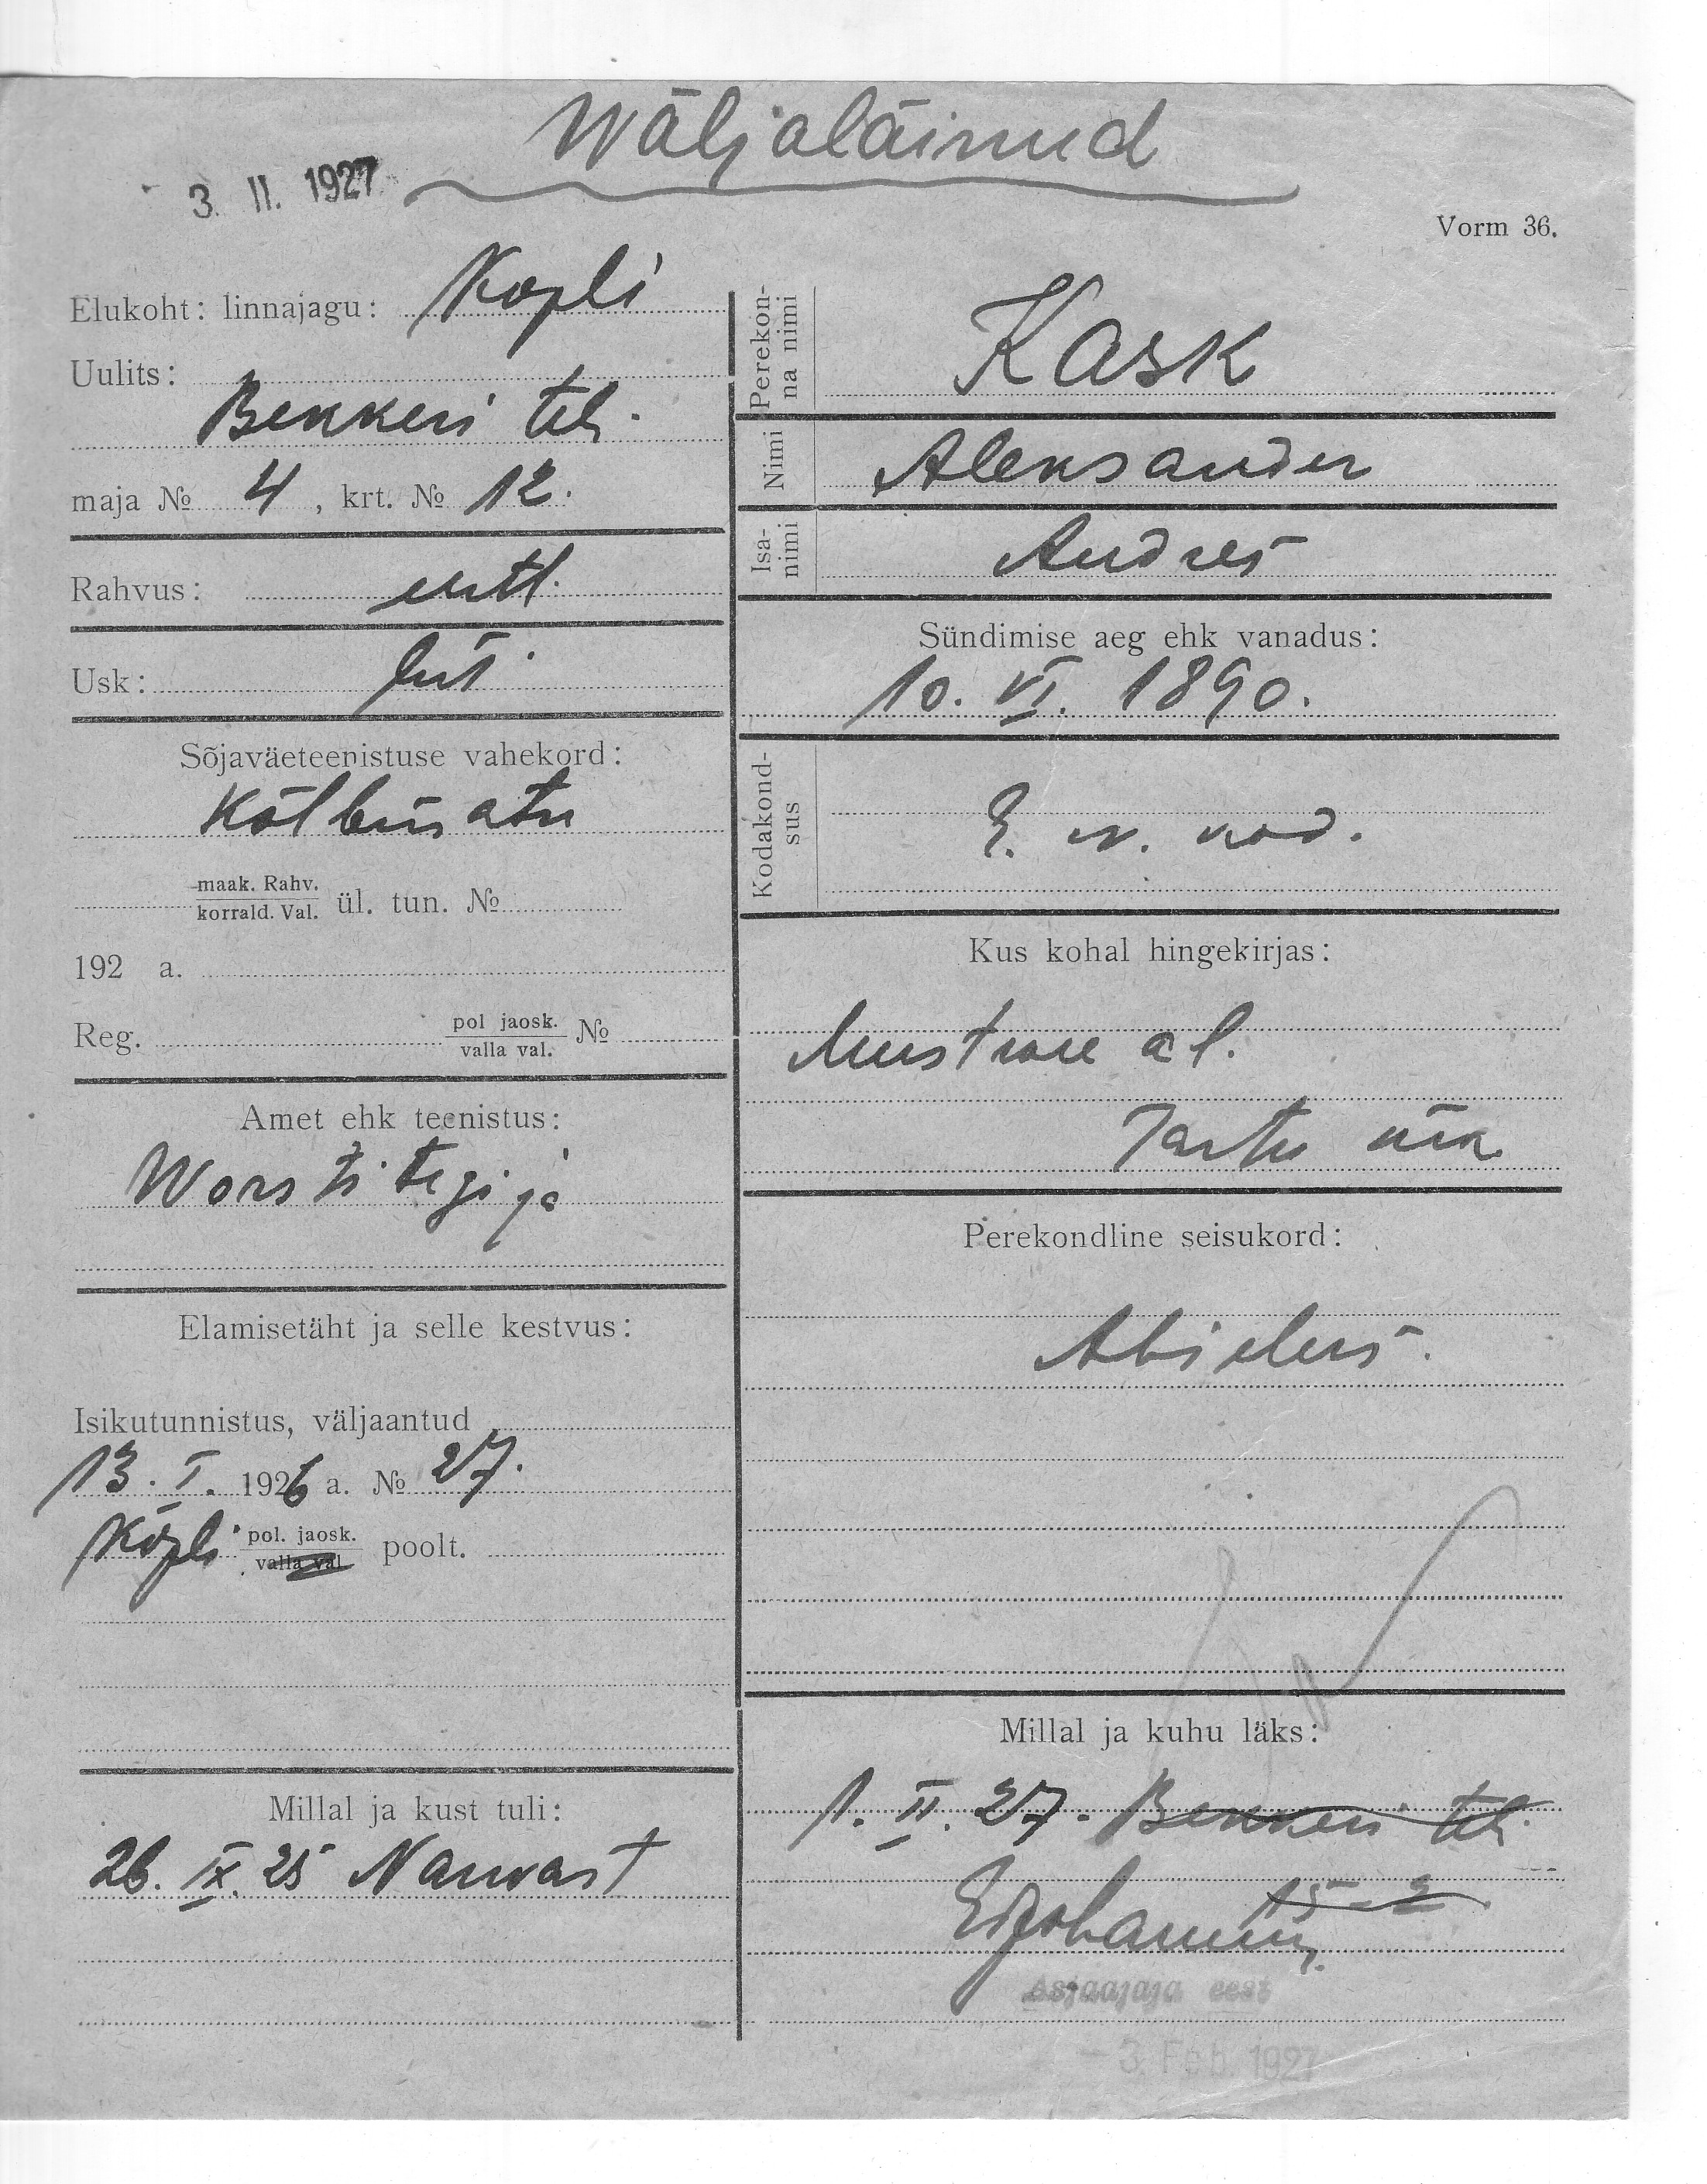 Wäljaläinud
3. II. 1927
Vorm 36.
Elukoht: linnajagu: Kopli
Uulits:
Bekkeri teh.
maja № 4, krt. № 12.
Rahvus: eestl.
Usk: lut.
Sõjaväeteenistuse vahekord:
Kõlbmatu
maak. Rahv.
korrald. Val. ül. tun. №
192 a.
Reg. pol jaosk.
valla val. №
Amet ehk teenistus:
Worsti tegija
Elamisetäht ja selle kestvus:
Isikutunnistus, väljaantud
13. I. 1926 a. № 27.
Kopli pol. jaosk.
valla val. poolt.
Millal ja kust tuli:
26. IX. 25 Narvast
Perekon-
na nimi
Kask
Nimi Aleksander
Isa-
nimi
Andres
Sündimise aeg ehk vanadus:
10. VI. 1890.
Kodakond-
sus
E. w. kod.
Kus kohal hingekirjas:
al.
Tartu
Perekondline seisukord:
Abielus.
Millal ja kuhu läks:
1. II. 27. Bekkeri teh.
15-2
Asjaajaja eest
3. Feb. 1927